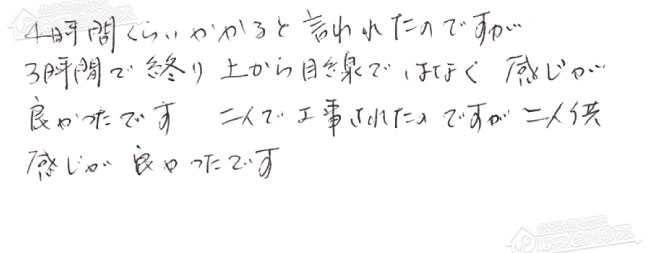 4時間くらいかかると言われたのですが
3時間で終り 上から目線ではなく 感じが
良かったです 二人で工事されたのですが二人供
感じが良かったです